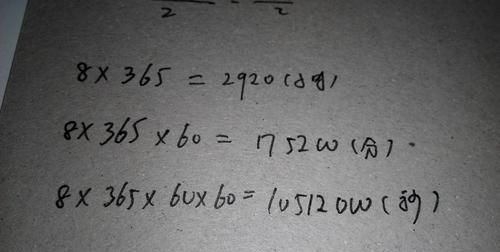 2 = 2
8 × 365 = 2920 (小时)
8 × 365 × 60 = 175200 (分)
8 × 365 × 60 × 60 = 10512000 (秒)